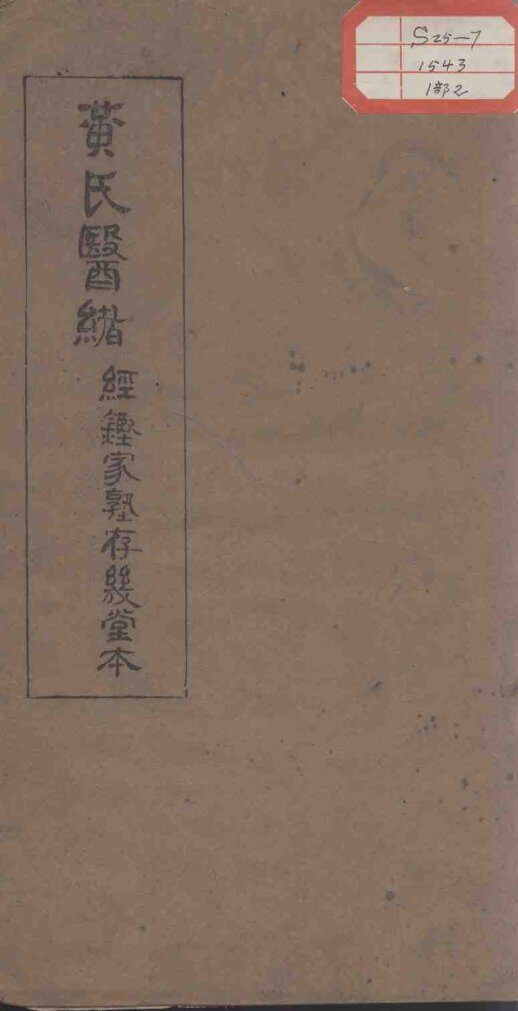 黄氏醫緒
經鑑家塾存幾堂本
S25-7
1543
1部2